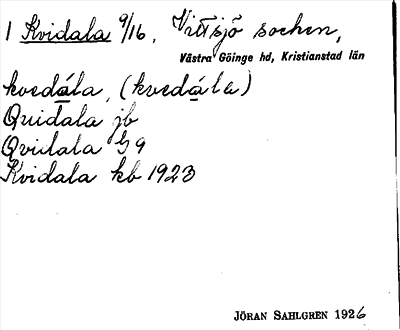 1 Kvidala 9/16, Vittsjö socken,
Västra Göinge hd, Kristianstad län
kvedála, (kvedála)
Quidala jb
Qvidala G 9
Kvidala kb 1923
JÖRAN SAHLGREN 1926